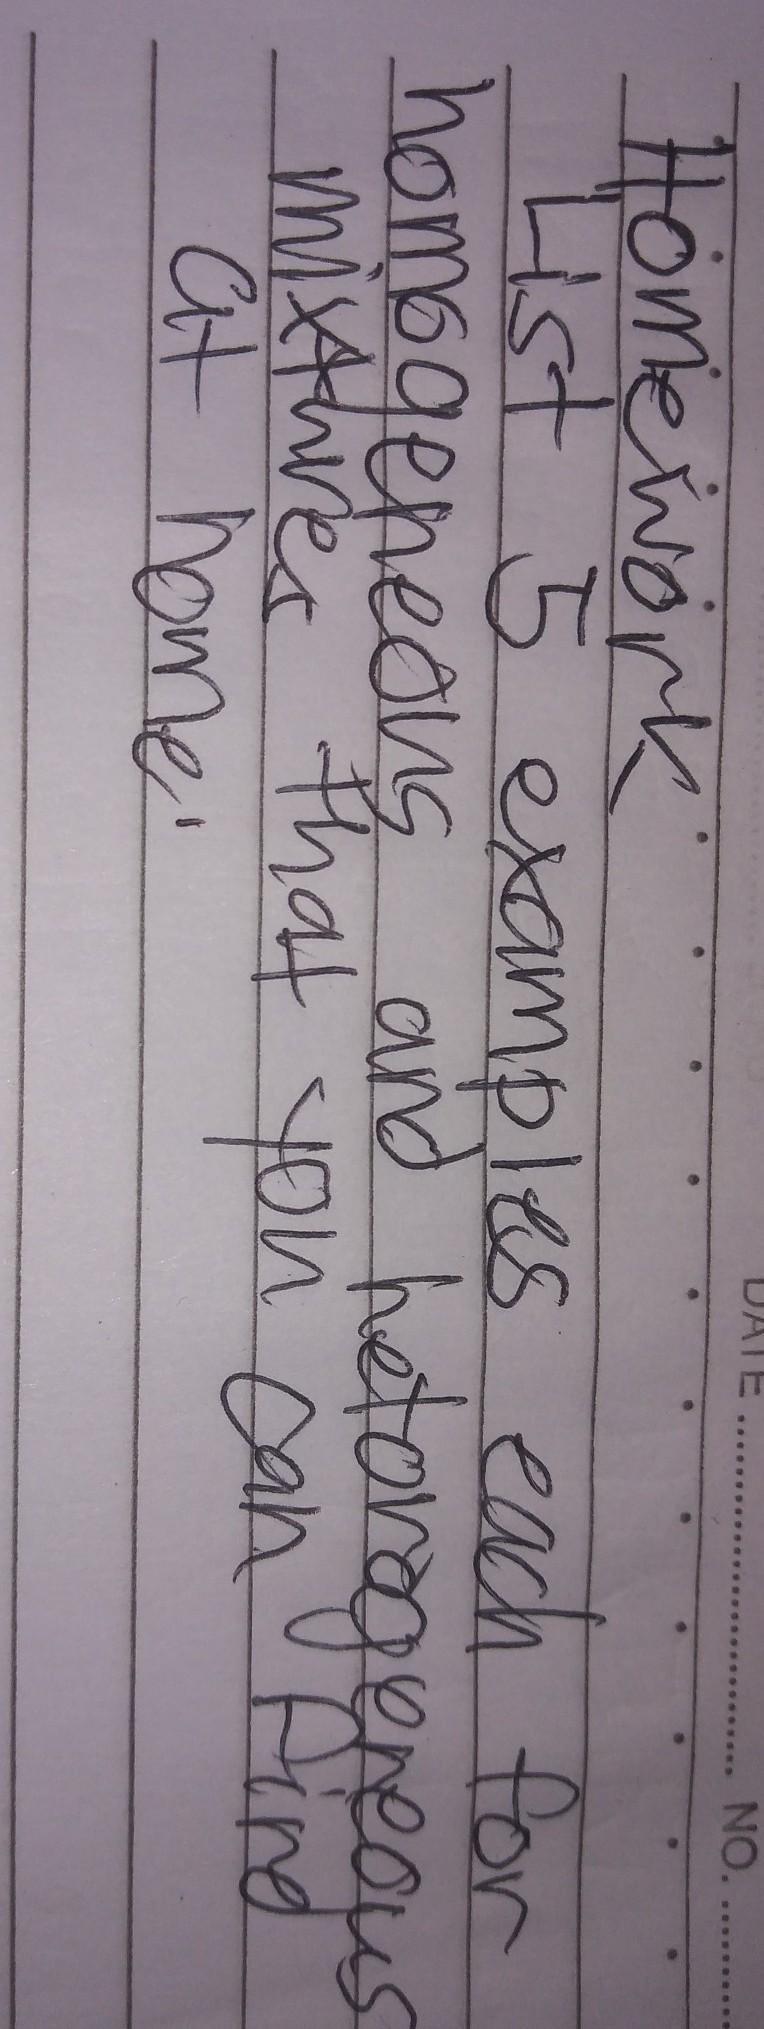 DATE ........................ NO. ............
Homework
List 5 examples each for
homogeneous and hetorogeneous
mixtures that you can find
at home.